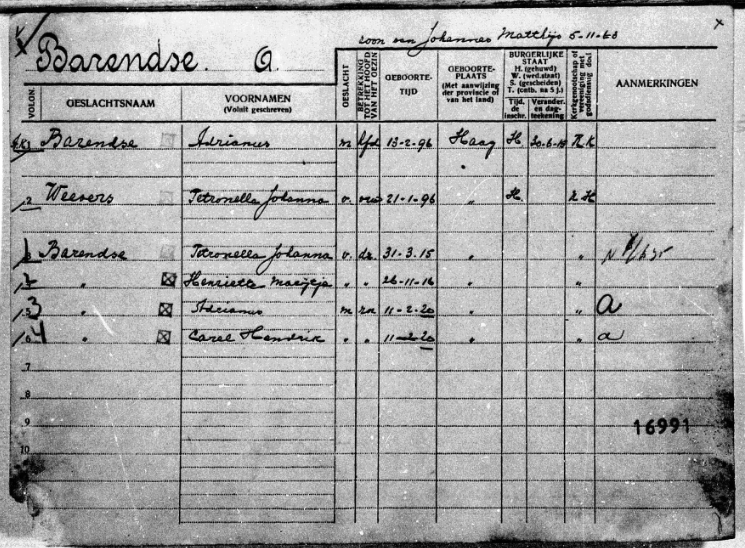 zoon van Johannes Matthijs 5-11-60
x
Barendse. A.
VOLGN.
GESLACHTSNAAM
VOORNAMEN
(Voluit geschreven)
GESLACHT
BETREKKING
TOT HET HOOFD
VAN HET GEZIN
GEBOORTE-
TIJD
GEBOORTE-
PLAATS
(Met aanwijzing
der provincie of
van het land)
BURGERLIJKE
STAAT
H. (gehuwd)
W. (wed.staat)
S. (gescheiden)
T. (ontb. na 5 j.)
Tijd.
de
inschr.
Verander.
en dag-
teekening
Kerkgenootschap of
vereeniging met
godsdienstig doel
AANMERKINGEN
Barendse Adrianus m hfd 13-2-96 Haag H R K
2 Weevers Petronella Johanna v. 21-1-96 " H. N H
Barendse Petronella Johanna v. dr. 31-3-15 " "
2 " Henriette " " 26-11-16 " "
3 " Adrianus m zn 11-2-20 " " a
4 " Carel Hendrik " " 11-2-20 " " a
7
8
9
16991
10